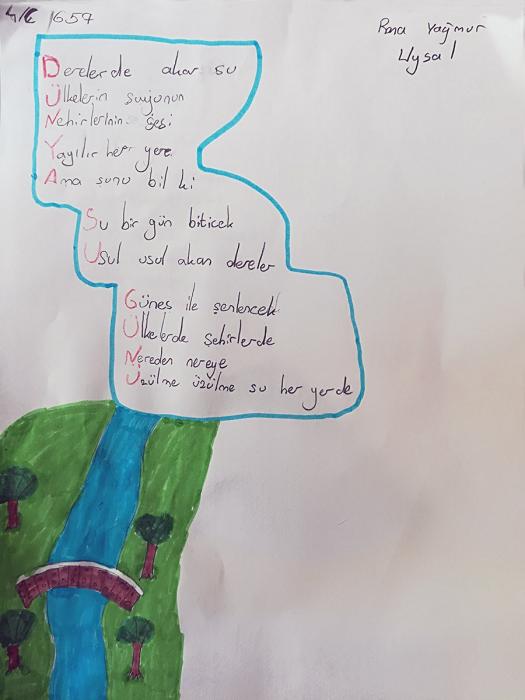 4/C 1657
Rana Yağmur
Uysal
Derelerde akar su
Ülkelerin suyunun
Nehirlerinin sesi
Yayılır her yere
Ama şunu bil ki
Su bir gün biticek
Usul usul akan dereler
Güneş ile şenlencek
Ülkelerde şehirlerde
Nereden nereye
Üzülme üzülme su her yerde